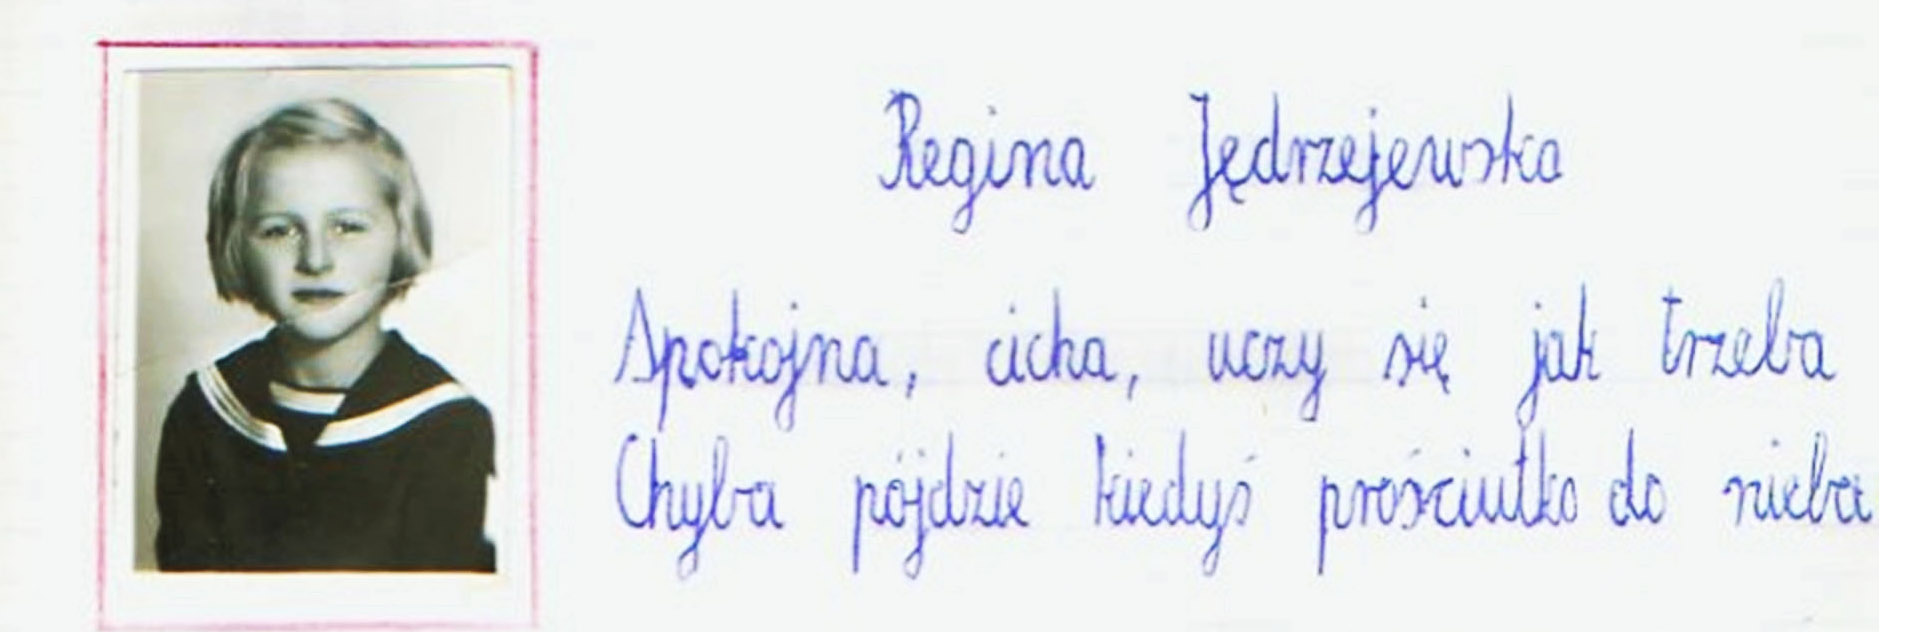 Regina Jędrzejewska
Spokojna, cicha, uczy się jak trzeba
Chyba pójdzie kiedyś prościutko do nieba